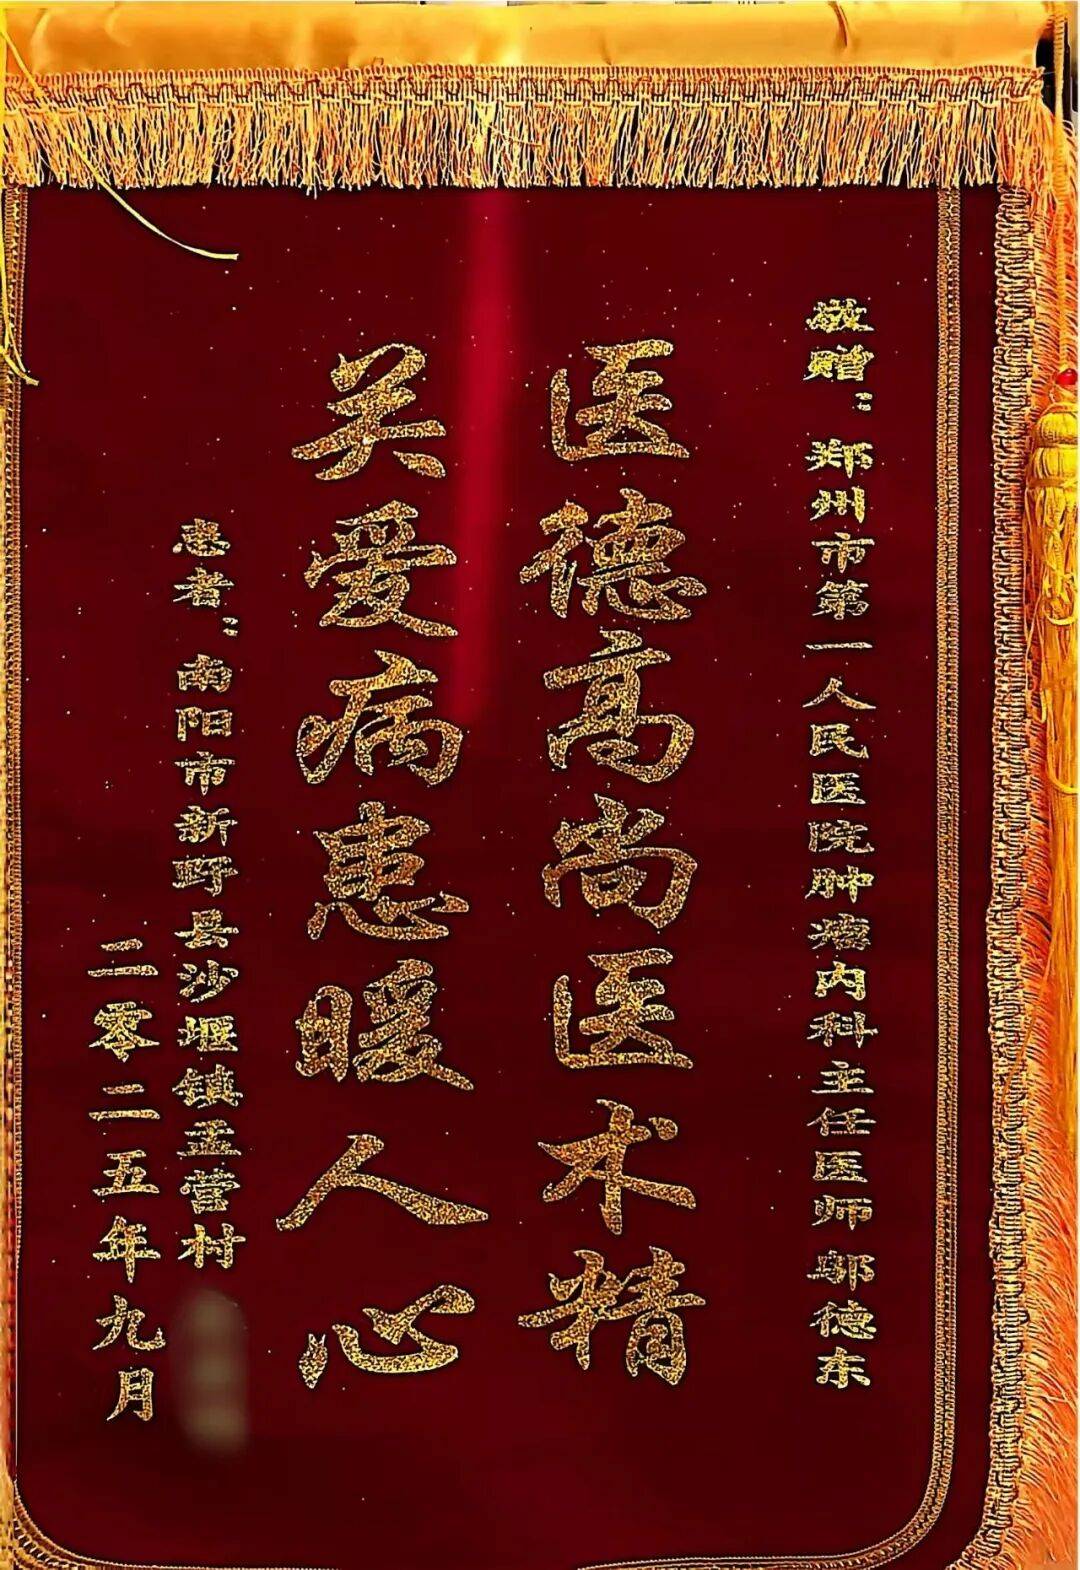 敬赠：郑州市第一人民医院肿瘤内科主任医师邬德东
医德高尚医术精
关爱病患暖人心
患者：南阳市新野县沙堰镇孟营村
二零二五年九月